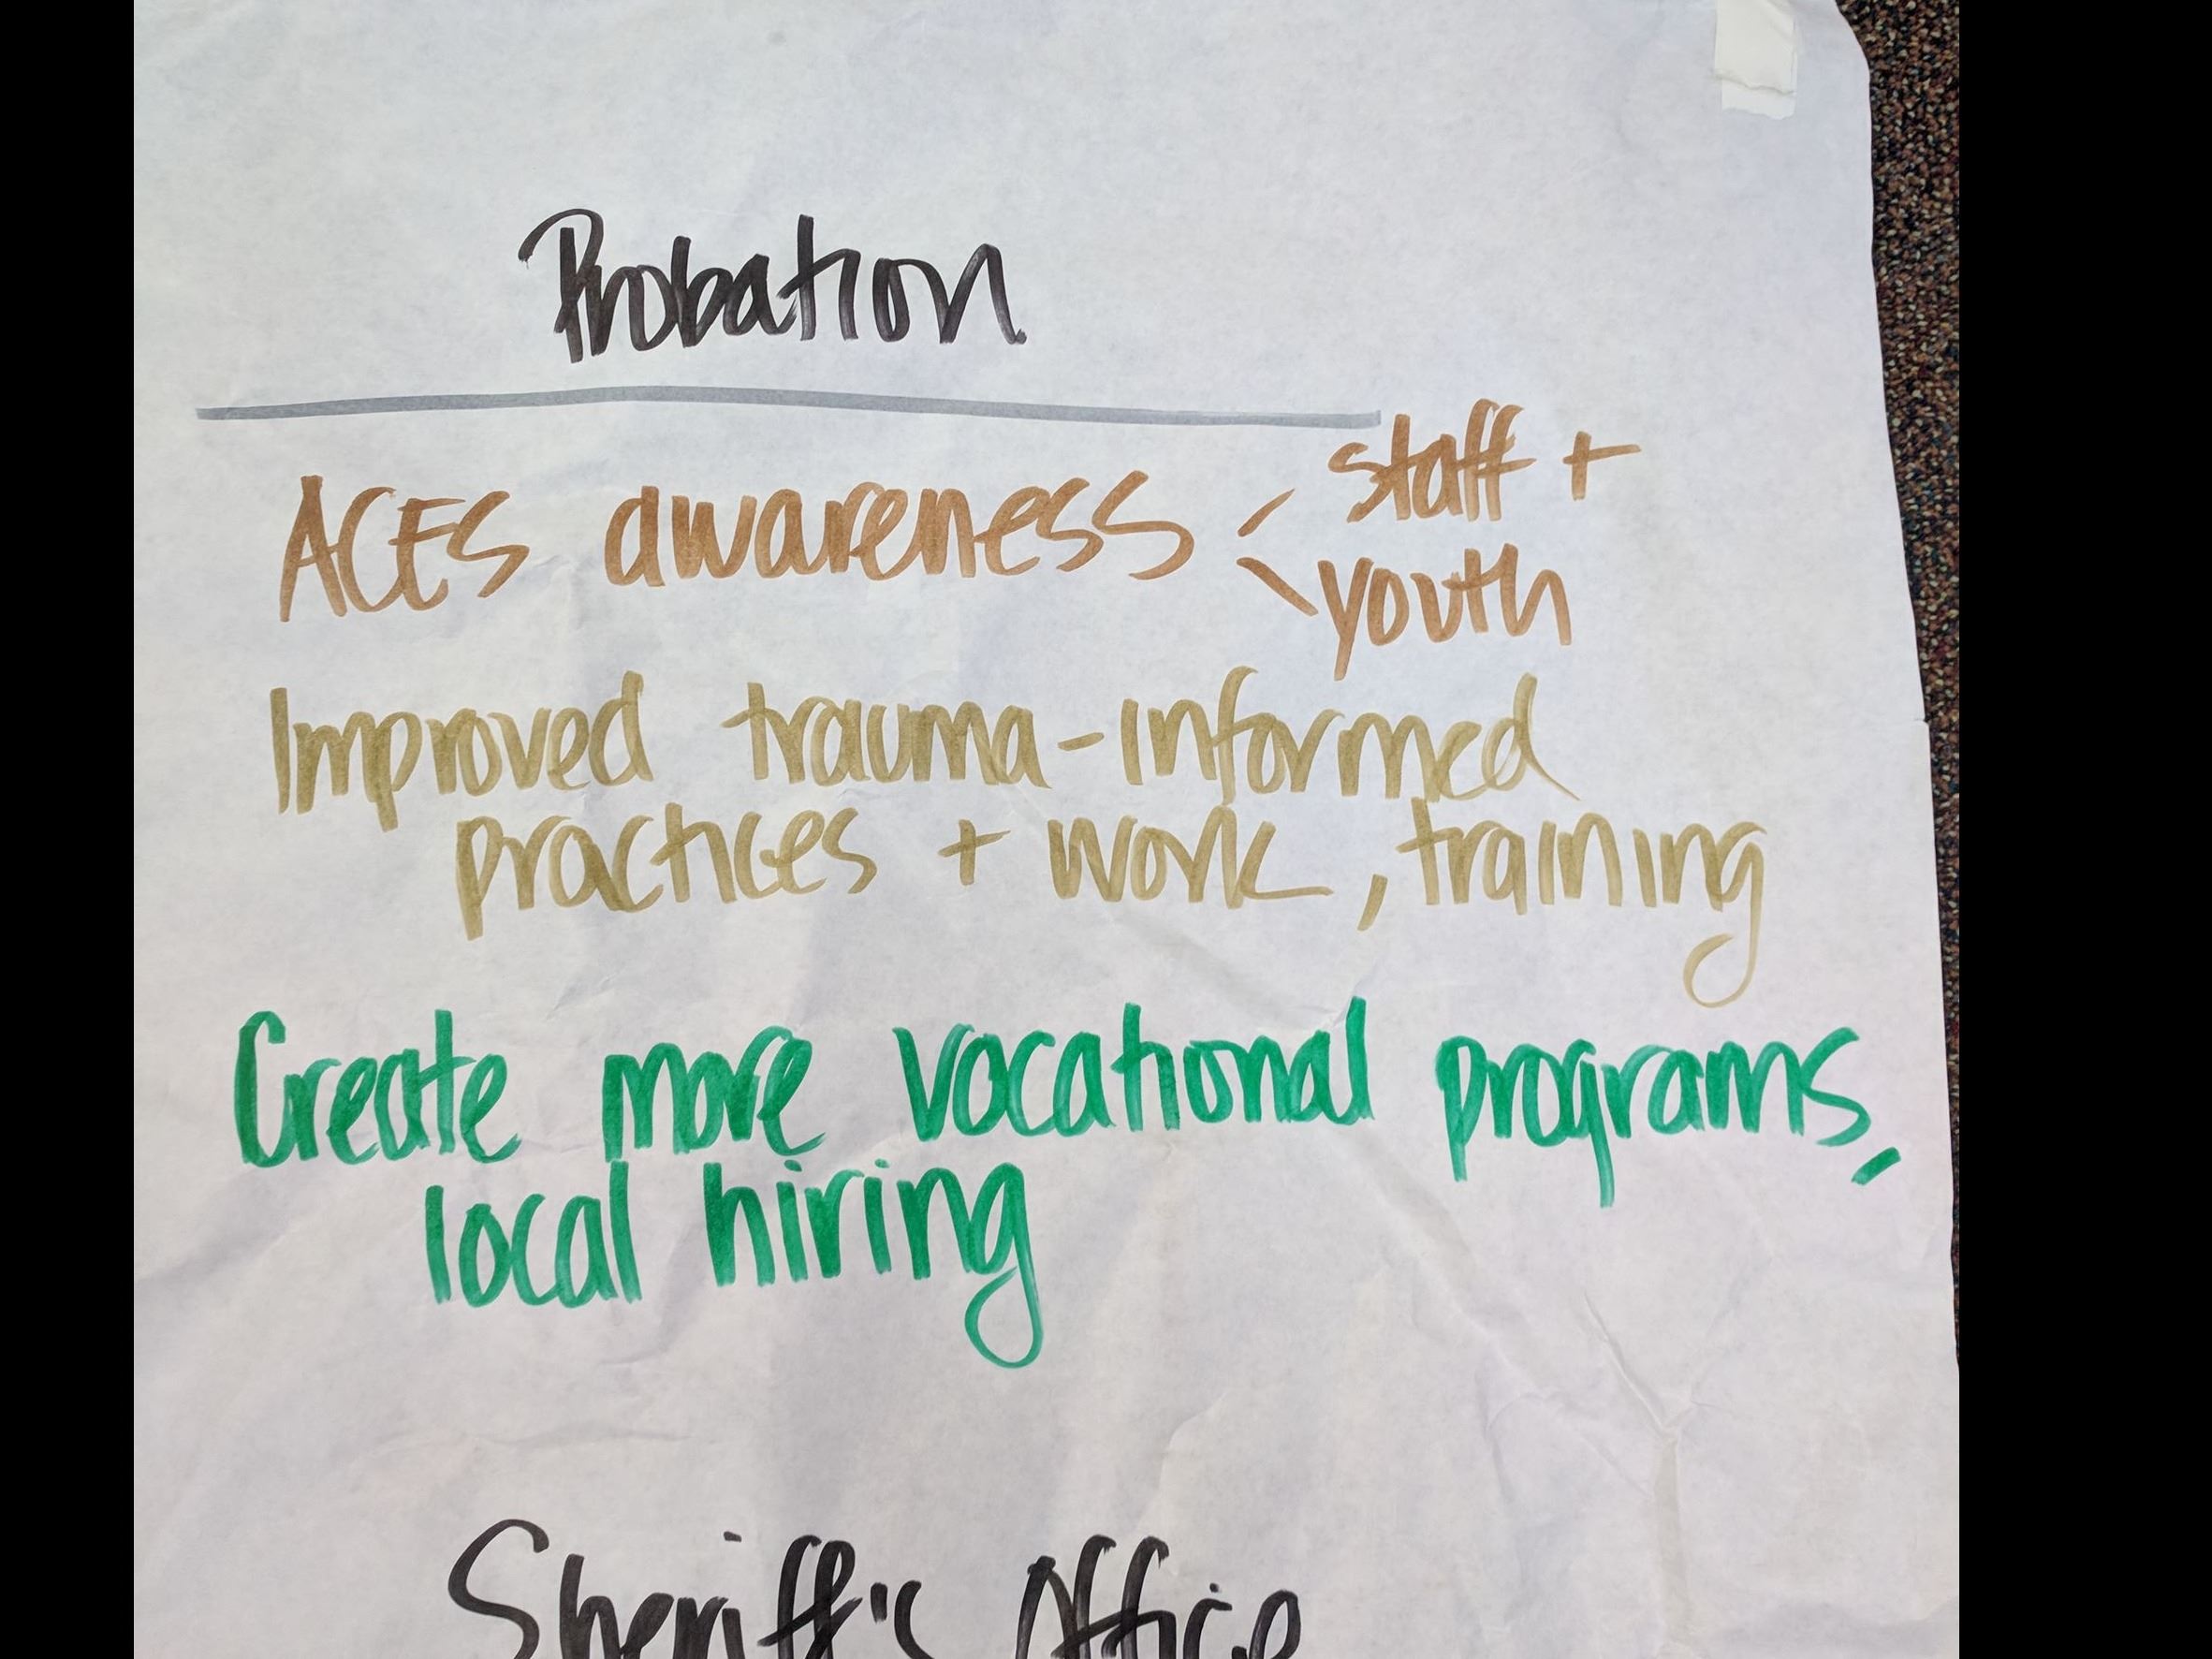 Probation
ACES awareness < staff +
youth
Improved trauma-informed
practices + work, training
Create more vocational programs,
local hiring
Sheriff's Office